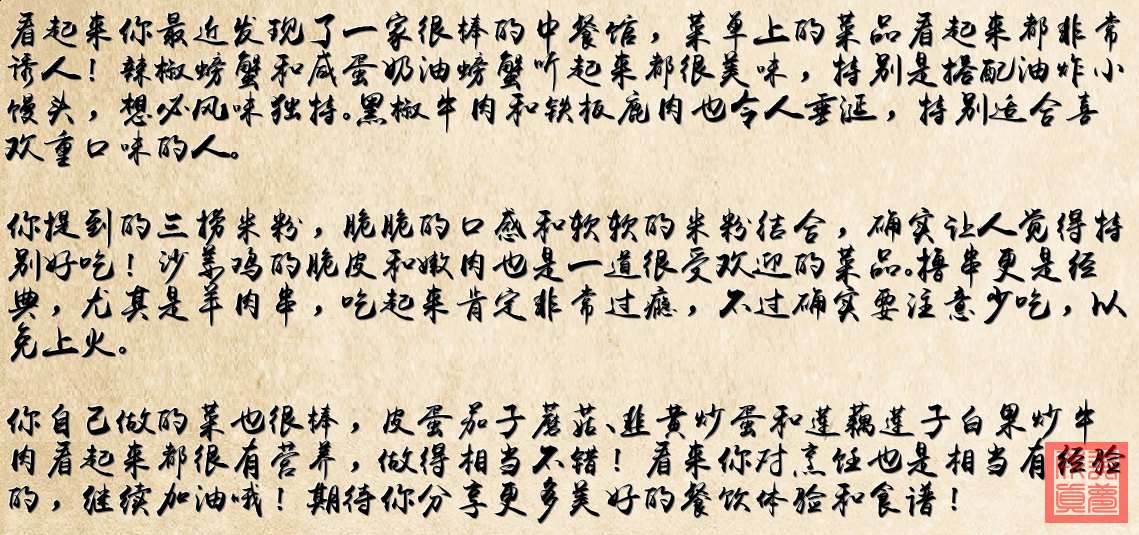 看起来你最近发现了一家很棒的中餐馆，菜单上的菜品看起来都非常
诱人！辣椒螃蟹和咸蛋奶油螃蟹听起来都很美味，特别是搭配油炸小
馒头，想必风味独特。黑椒牛肉和铁板鹿肉也令人垂涎，特别适合喜
欢重口味的人。
你提到的三捞米粉，脆脆的口感和软软的米粉结合，确实让人觉得特
别好吃！沙姜鸡的脆皮和嫩肉也是一道很受欢迎的菜品。撸串更是经
典，尤其是羊肉串，吃起来肯定非常过瘾，不过确实要注意少吃，以
免上火。
你自己做的菜也很棒，皮蛋茄子蘑菇、韭黄炒蛋和莲藕莲子白果炒牛
肉看起来都很有营养，做得相当不错！看来你对烹饪也是相当有经验
的，继续加油哦！期待你分享更多美好的餐饮体验和食谱！